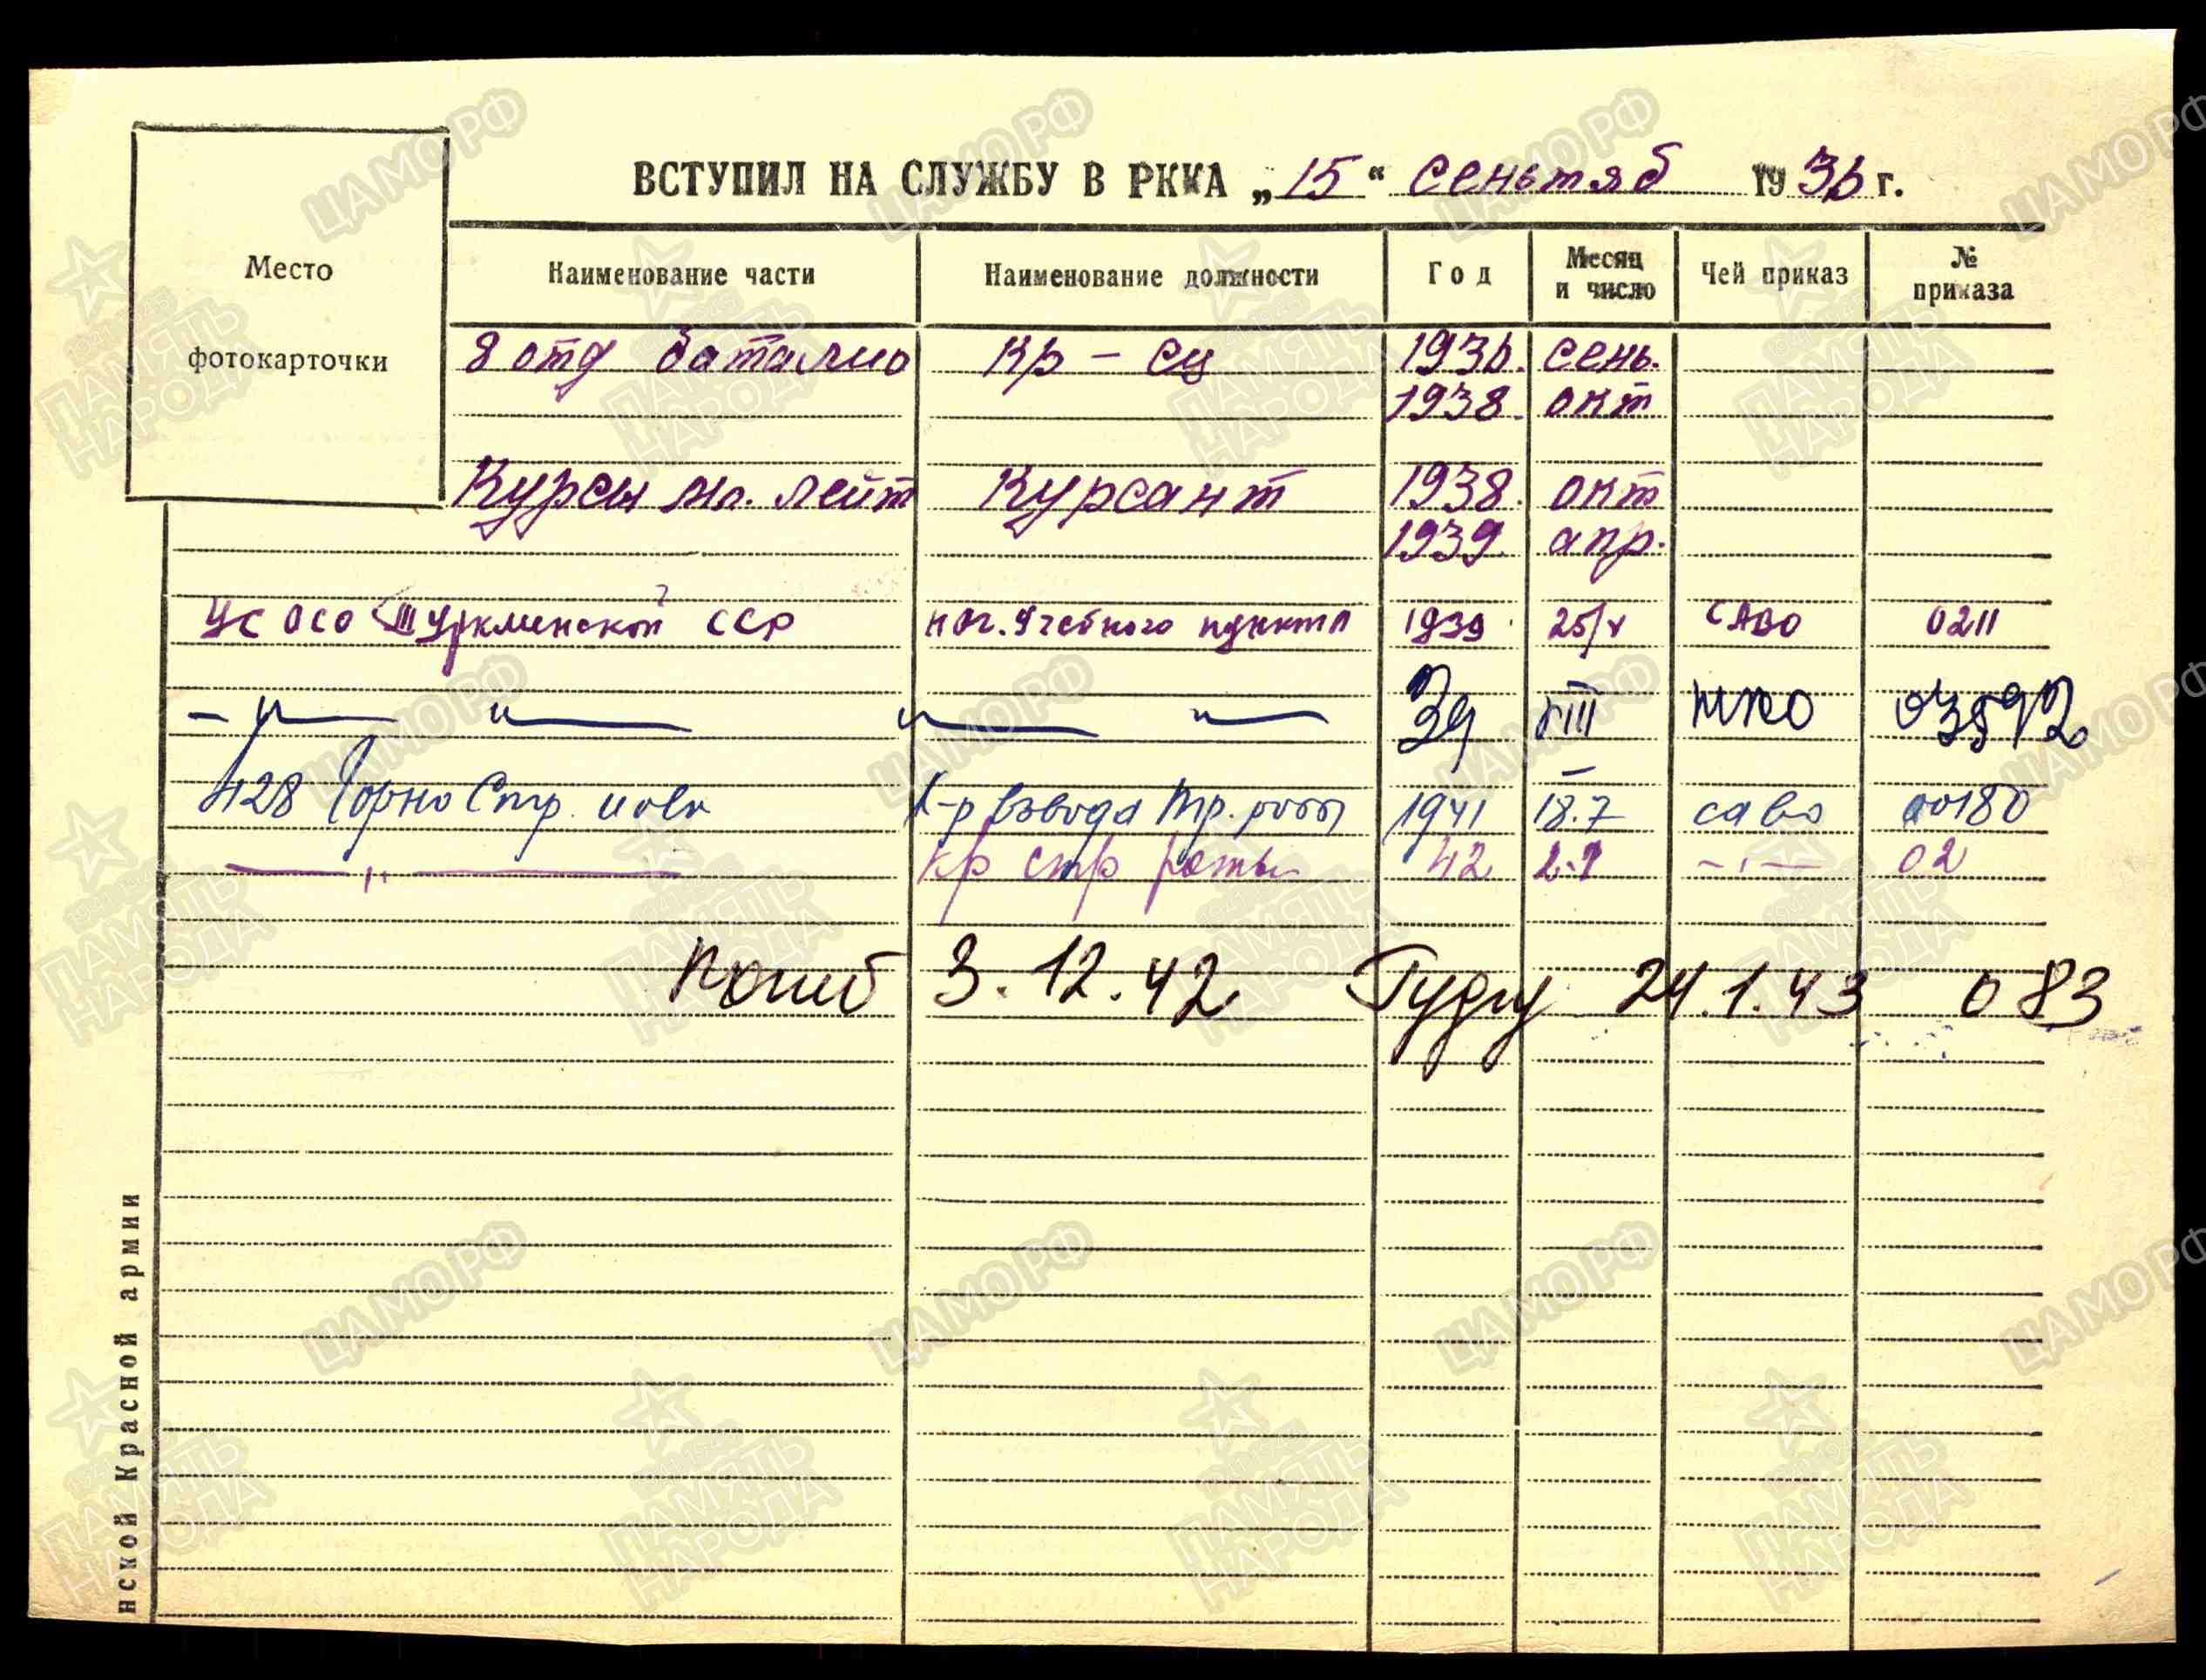 ВСТУПИЛ НА СЛУЖБУ В РККА „15“ сеньтяб 1936 г.
Место фотокарточки
Наименование части Наименование должности Год Месяц и число Чей приказ № приказа
8 отд баталио Кр-ец 1936. сень.
1938. окт
Курсы мл. лейт Курсант 1938. окт
1939. апр.
УС ОСО Туркменской ССР нач. Учебного пункта 1939 25/V САВО 0211
— " — " — " — " — 39 VIII НКО 03592
428 Горно Стр. полк К-р взвода тр. роты 1941 18.7 саво 00180
— " — кр стр роты 42 2.1 — " — 02
Погиб 3.12.42 Гуфу 24.1.43 083
нской Красной армии
ЦАМО РФ
ПАМЯТЬ НАРОДА